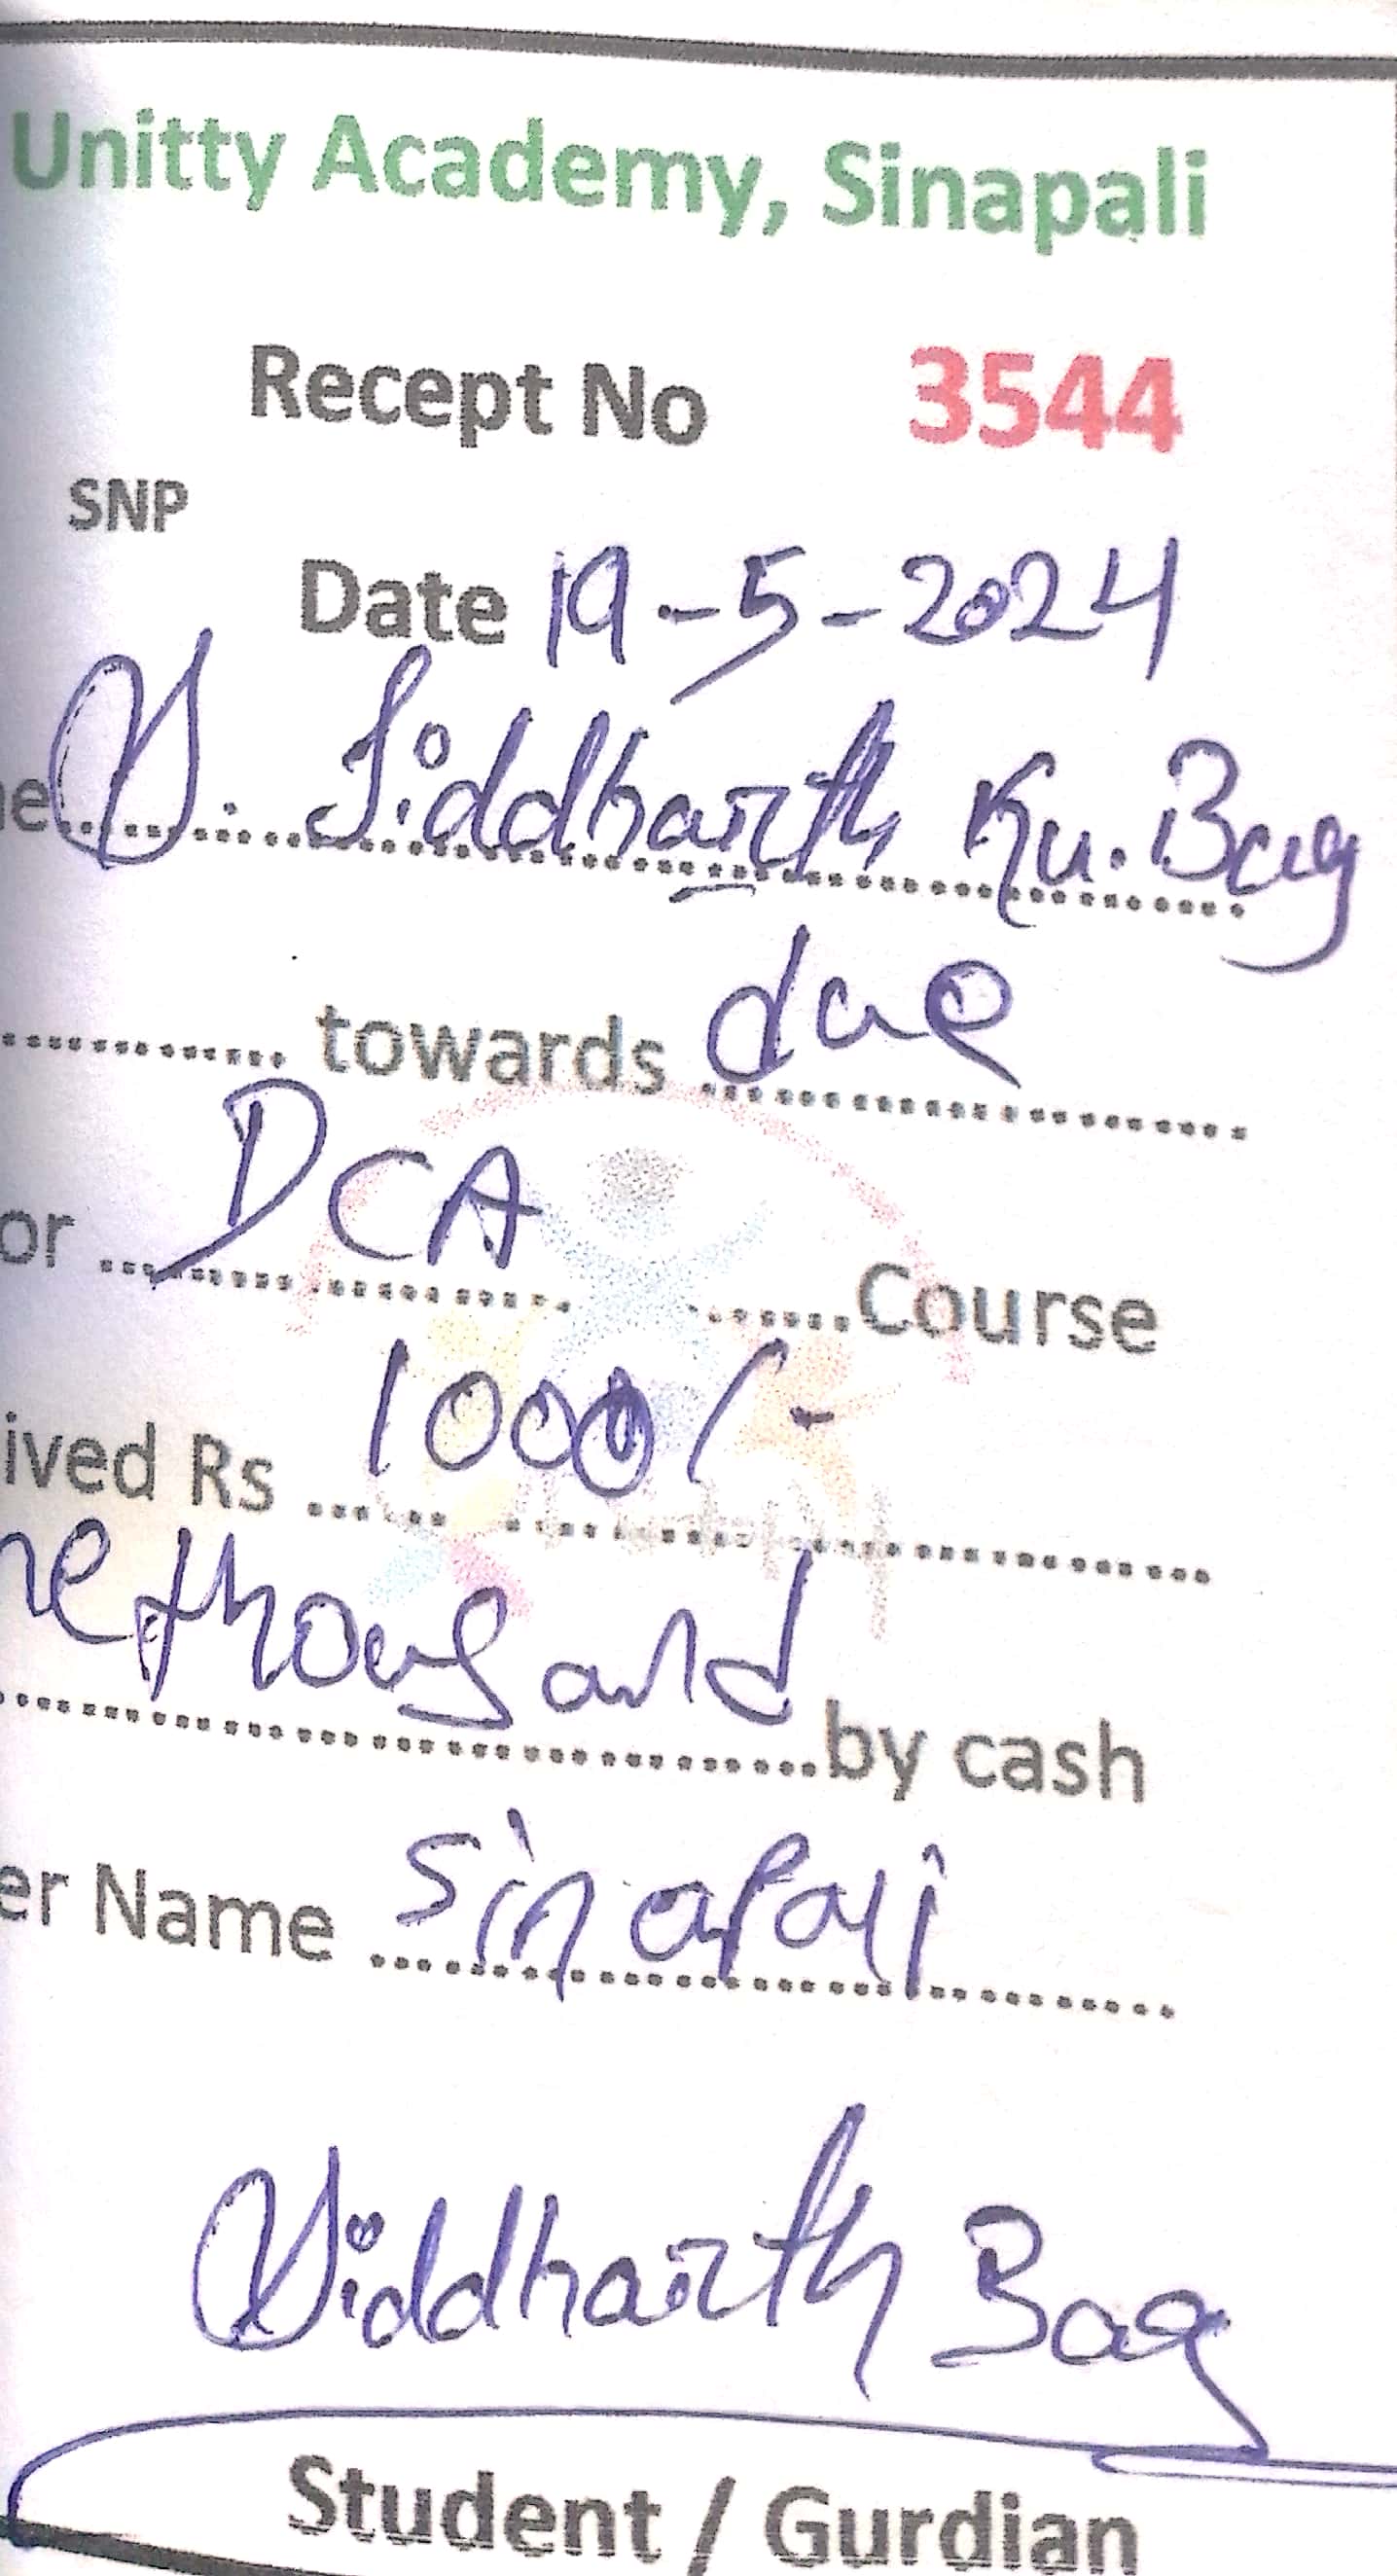 Unitty Academy, Sinapali
Recept No 3544
SNP
Date 19-5-2024
e S. Siddharth Ku. Bag
towards due
or DCA Course
ived Rs 1000/-
ne thousand by cash
er Name Sinapali
Siddharth Bag
Student / Gurdian